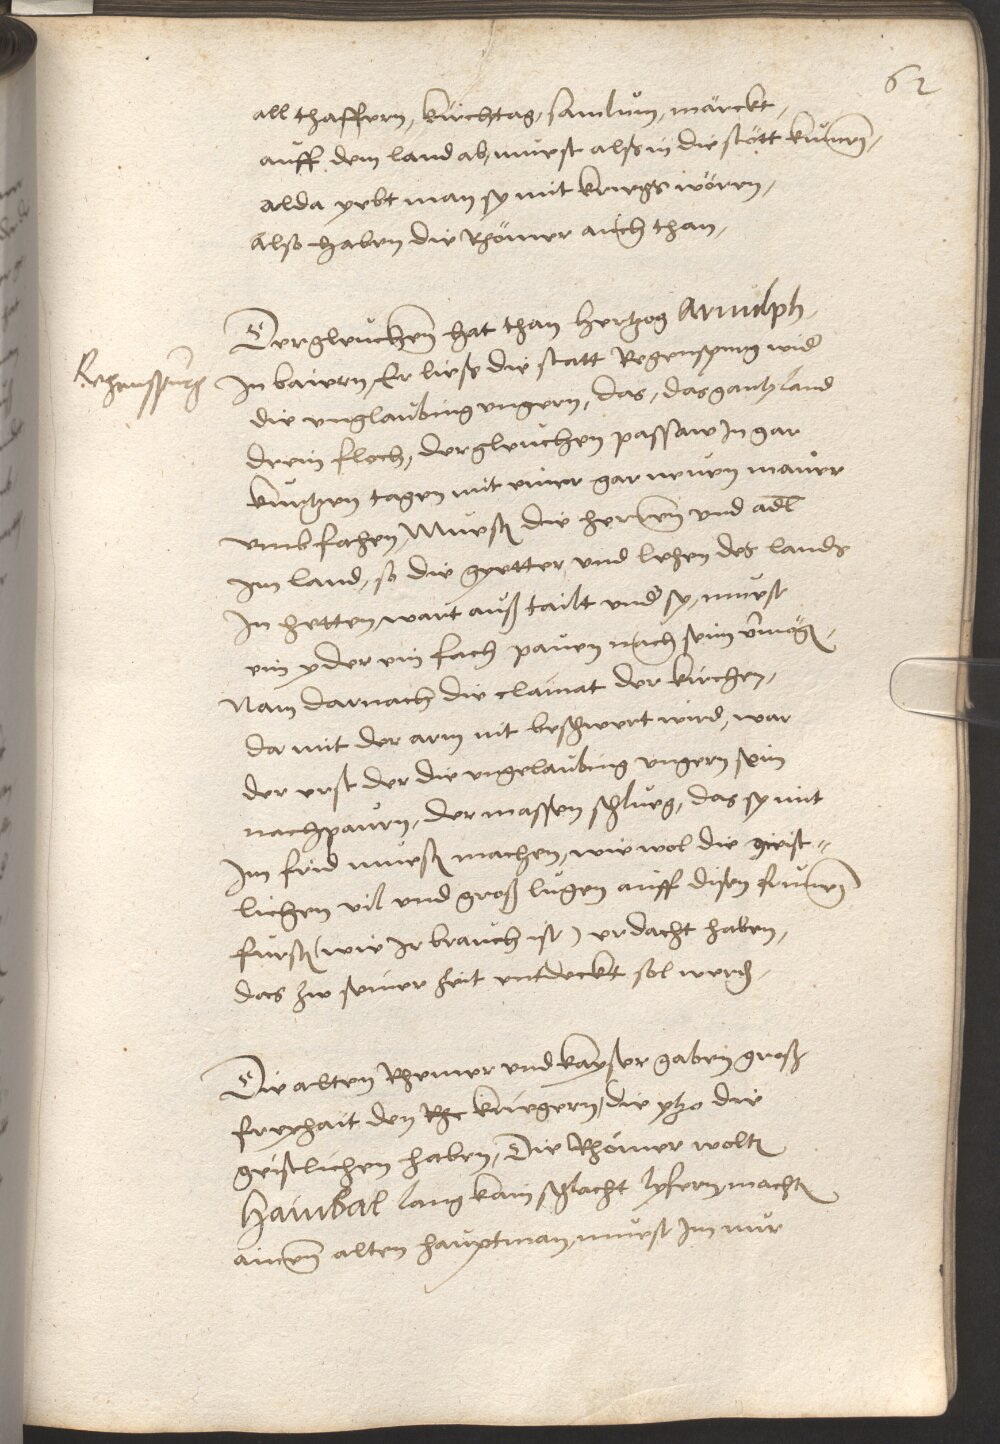 62
all thaffern, kirchtag, samlum, märckt,
auff dem land ab, muest alß in die stött kumen,
alda yebt man sy mit kriegs wören,
also haben die Rhömer auch than,
Dergleuchen hat than hertzog Arnulph
Regenspurg
In baiern, Er ließ die statt Regenspurg wider
die unglaubing ungern, das, das gantz land
drein floch, dergleuchen passaw In gar
kurtzen tagen mit einer gar neuen mauer
umbfahen, Muest die herren und adl
im land, so die gyetter und lehen des lands
In hetten, wart auß tailt under sy, muest
ein yder ein fach pauen nach seim vermögen,
Nam darnach die clainat der kirchen,
da mit der arm nit beschwert wird, war
der erst der die ungelaubing ungern sein
nachpaurn, der massen schlueg, das sy mit
Im frid muesten machen, wie wol die geist=
lichen vil und groß lugen auff disen frumen
fürsten (wie Ir brauch ist) erdacht haben,
das zw seiner zeit entdeckt sol werden,
Die alten Rhemer und kayser gaben groß
freyhait den kriegern, die yetzo die
geistlichen haben, Die Rhömer wolten
Hanibal lang kain schlacht lyfern, machten
ainen alten hauptman, muest Im nur